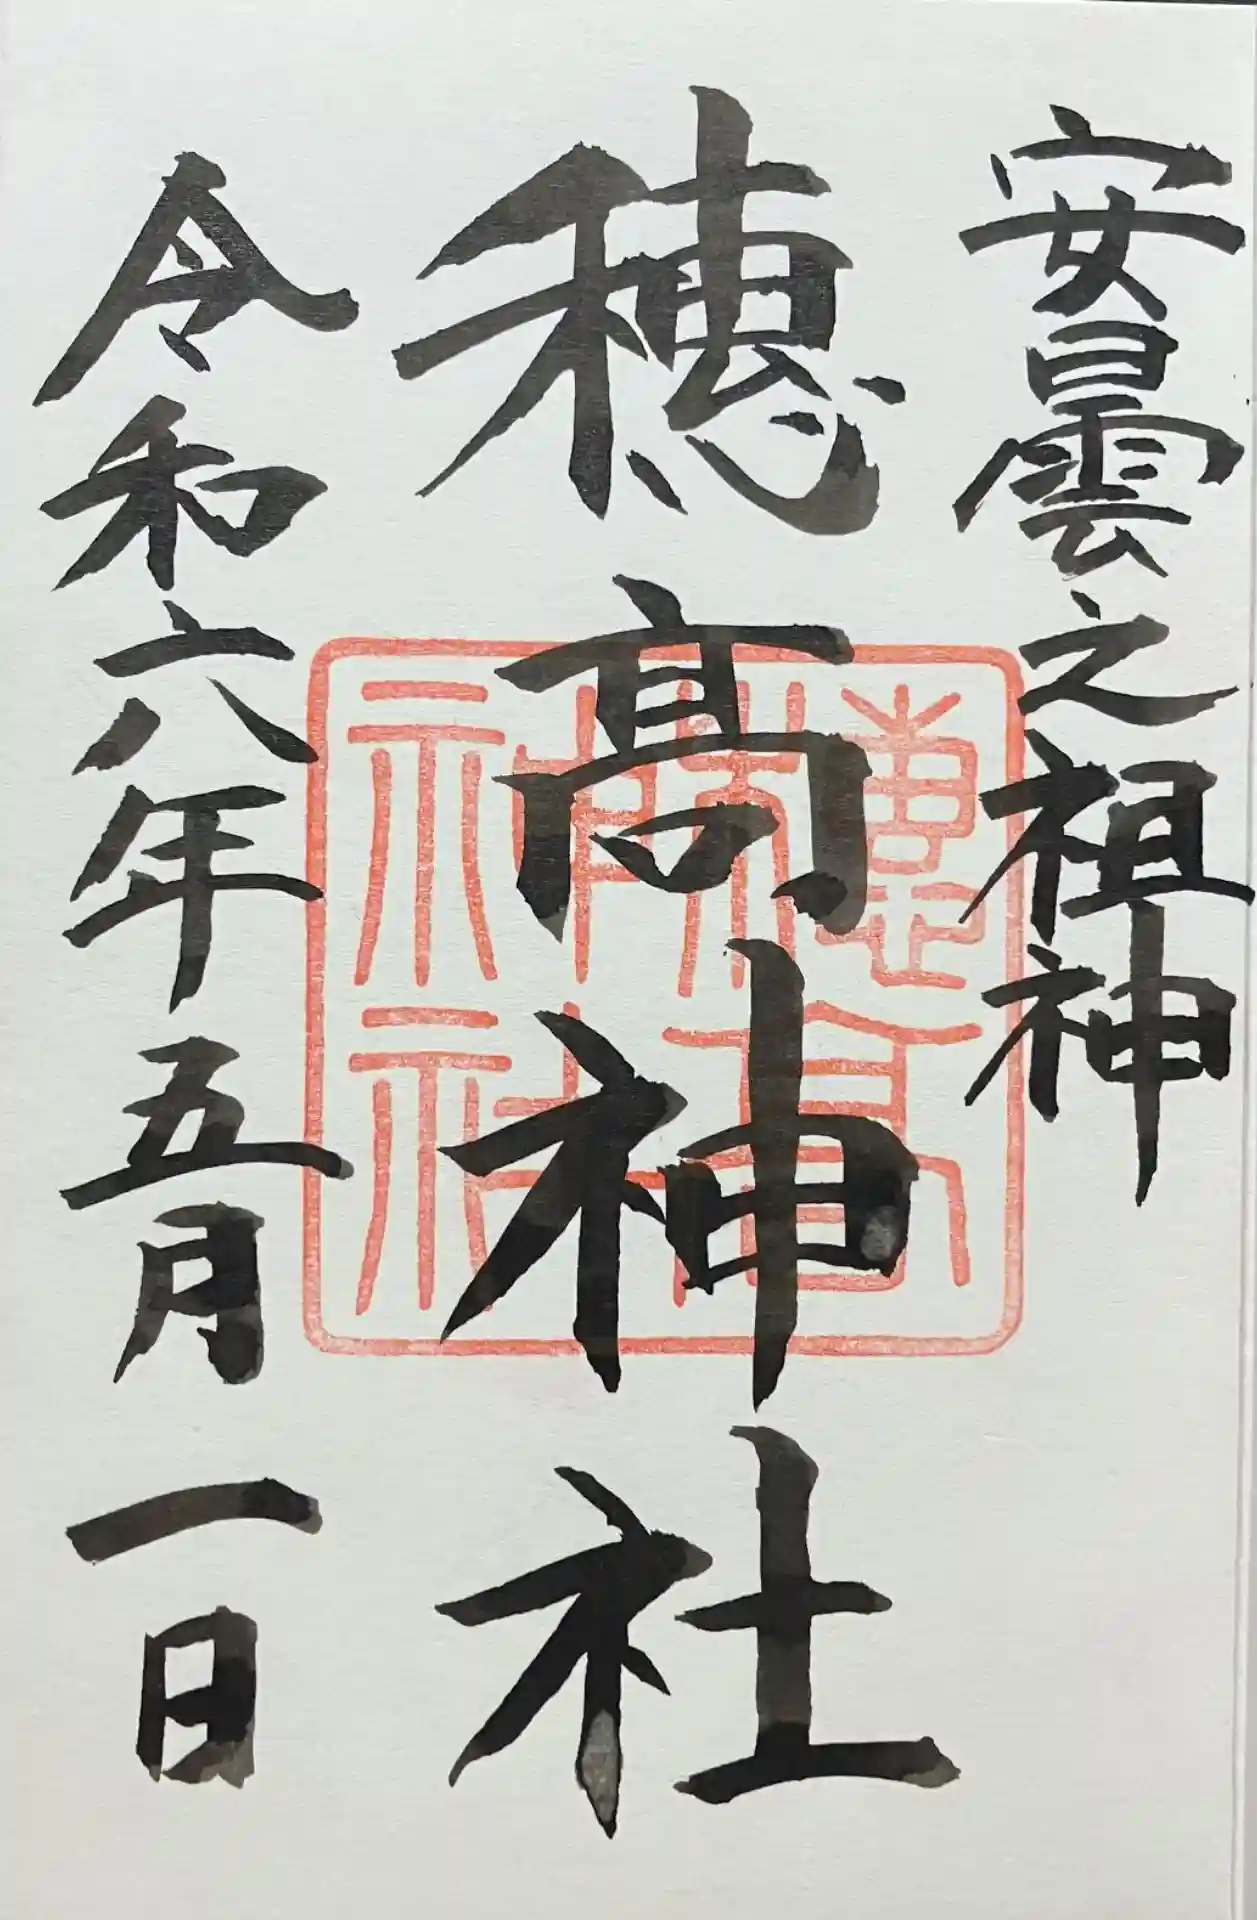 安曇之祖神
穂髙神社
穂髙神社
令和六年五月一日